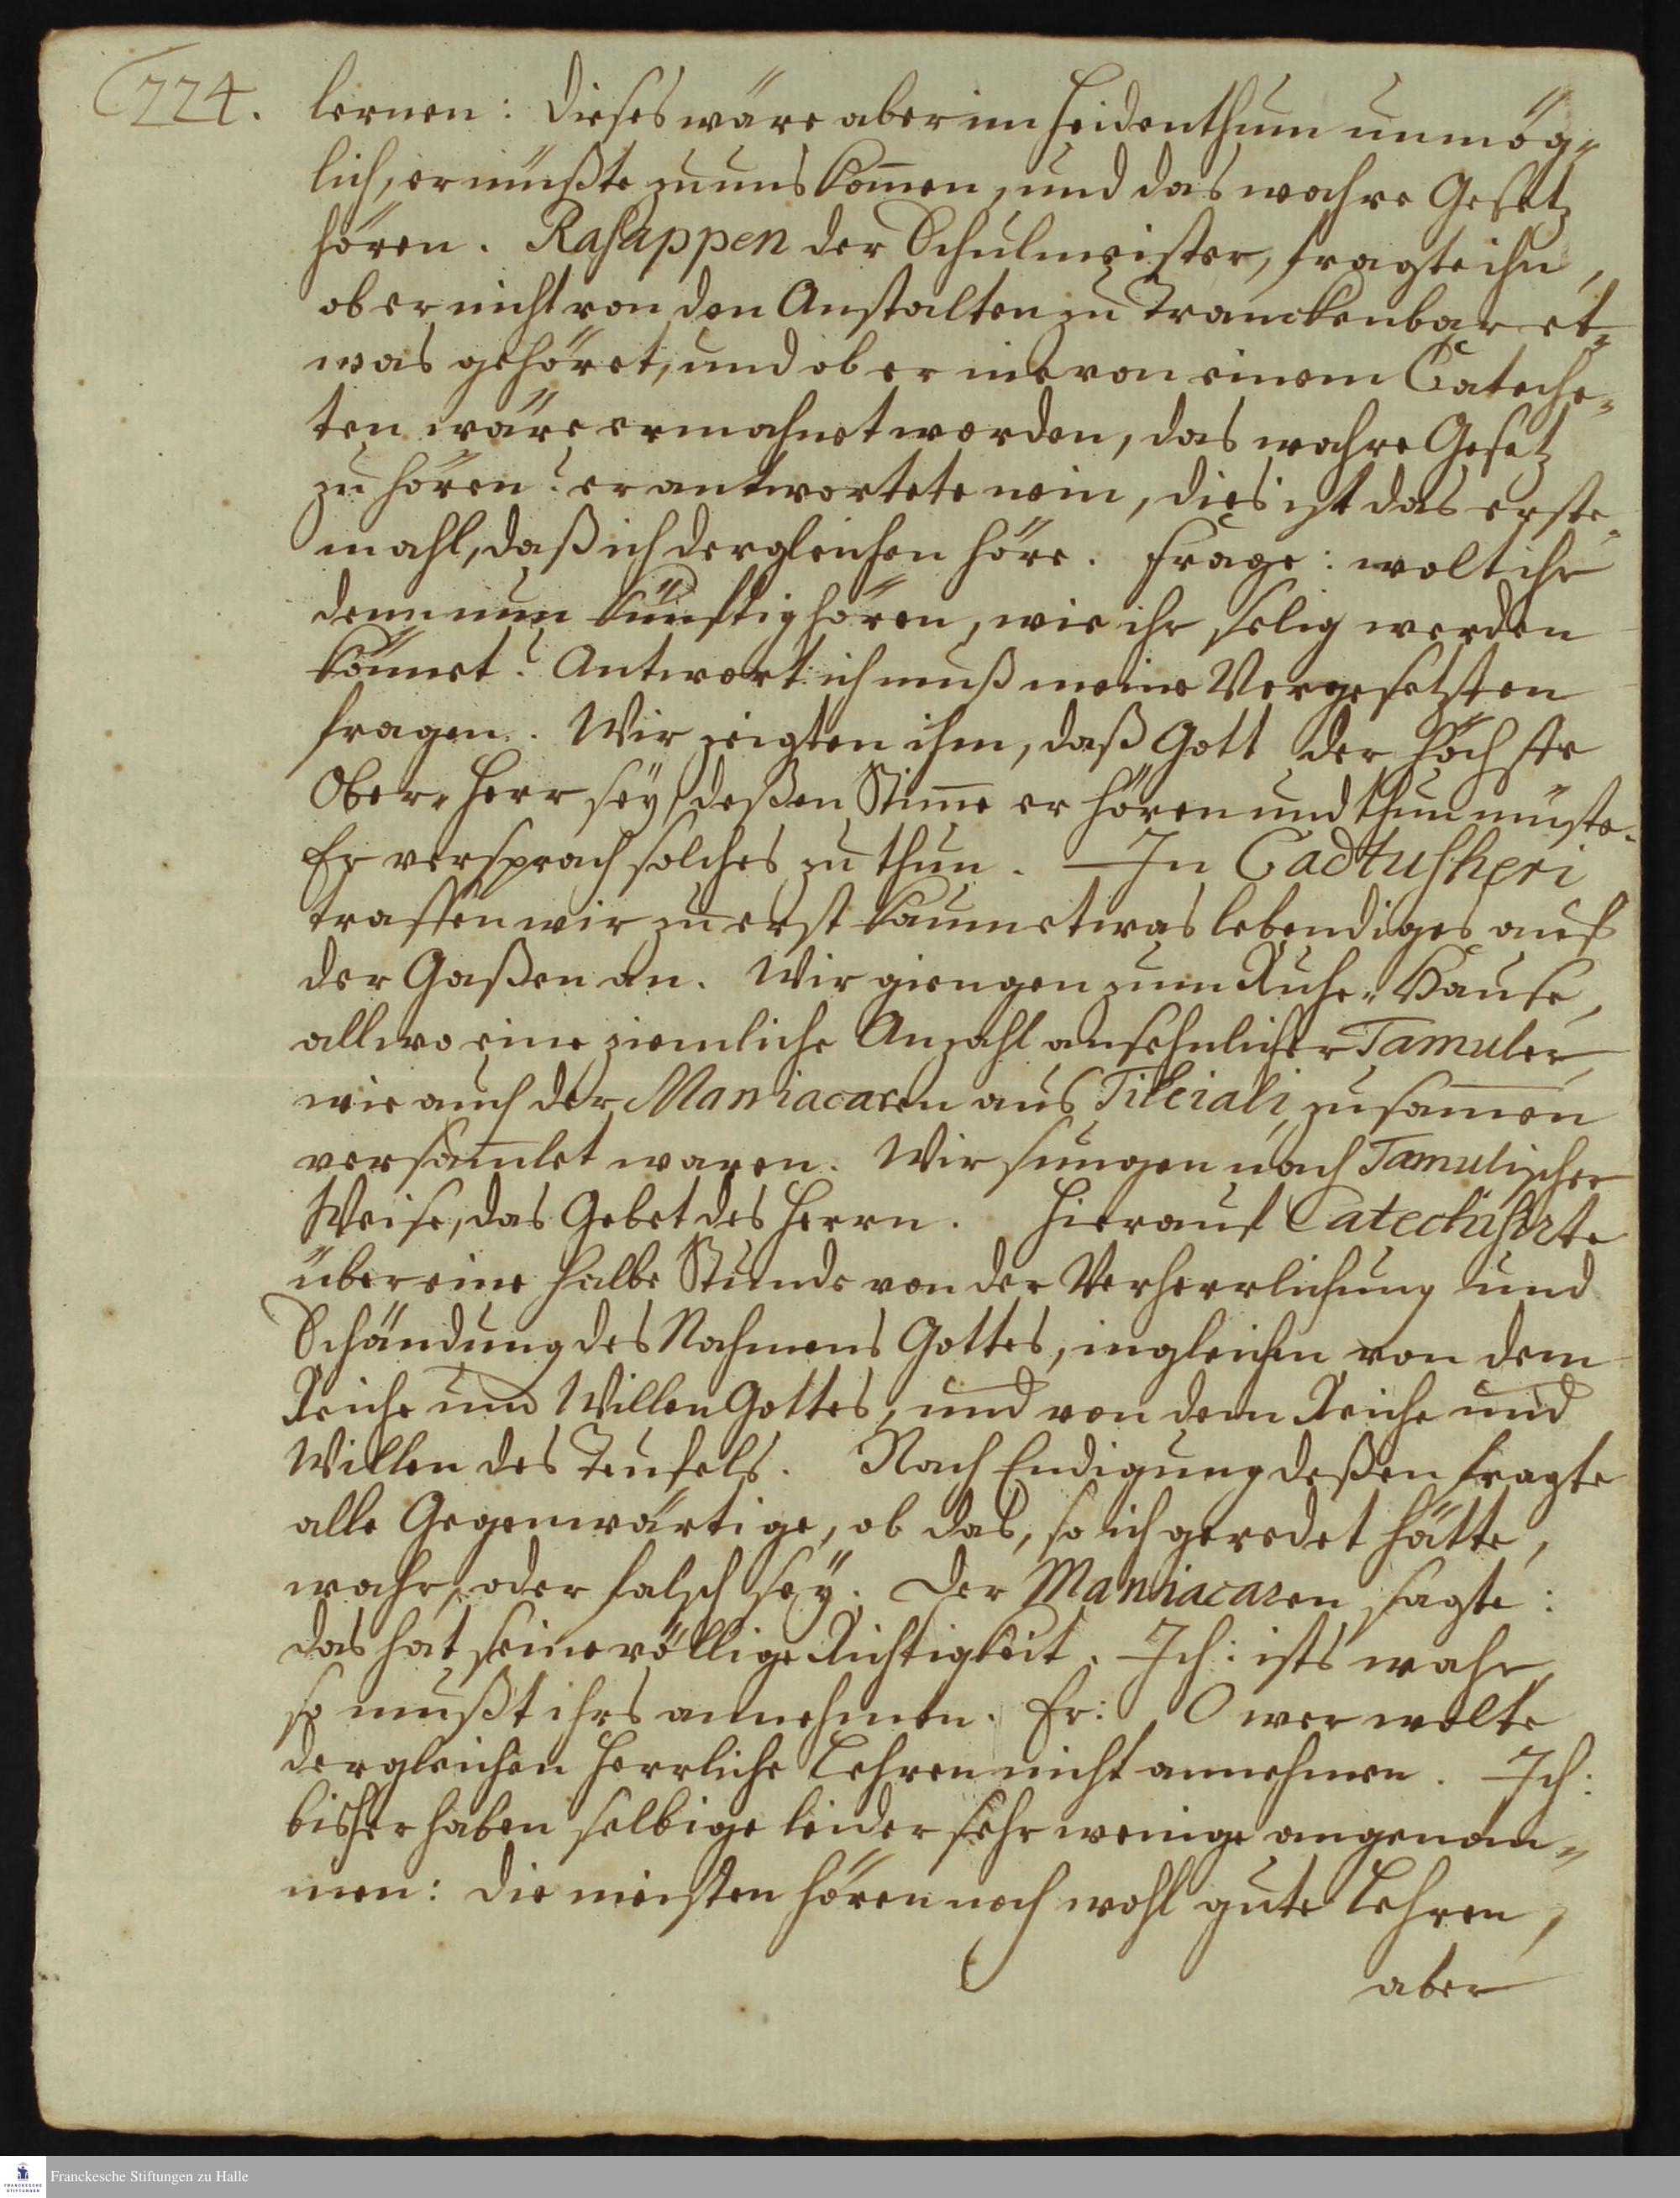 224.
lernen: dieses wäre aber im Heidenthum unmög„
lich, er müßte zu uns kom̄en, und das wahre Gesetz
hören. Rasappen der Schulmeister, fragte ihn,
ob er nicht von den Anstalten zu Tranckenbar et„
was gehöret, und ob er nie von einem Cateche„
ten wäre ermahnet worden, das wahre Gesetz
zu hören? er antwortete nein, dies ist das erste„
mahl, daß ich dergleichen höre. Frage: wolt ihr
denn nun künftig hören, wie ihr selig werden
könnet? Antwort: ich muß meine Vorgesetzten
fragen. Wir zeigten ihm, daß Gott der höchste
Ober„Herr sey, deßen Stim̄e er hören und thun müste.
Er versprach solches zu thun. — In Cadtusheri
traffen wir zu erst kaum etwas lebendiges auf
der Gaßen an. Wir giengen zum Ruhe„Hause,
allwo eine ziemliche Anzahl ansehnlicher Tamuler,
wie auch der Maniacaren aus Tileiali, zusam̄en
versam̄let waren. Wir sungen nach Tamulischer
Weise, das Gebet des Herrn. Hierauf Catechisirte
über eine halbe Stunde von der Verherrlichung und
Schändung des Nahmens Gottes, ingleichen von dem
Reiche und Willen Gottes, und von dem Reiche und
Willen des Teufels. Nach Endigung deßen fragte
alle Gegenwärtige, ob das, so ich geredet hätte,
wahr, oder falsch sey. Der Maniacaren sagte:
das hat seine völlige Richtigkeit. Ich: ists wahr,
so mußt ihrs annehmen. Er: O wer wolte
dergleichen herrliche Lehren nicht annehmen. Ich:
bisher haben selbige leider sehr wenige angenom„
men: die meisten hören noch wohl gute Lehren,
aber
Franckesche Stiftungen zu Halle
FRANCKESCHE
STIFTUNGEN